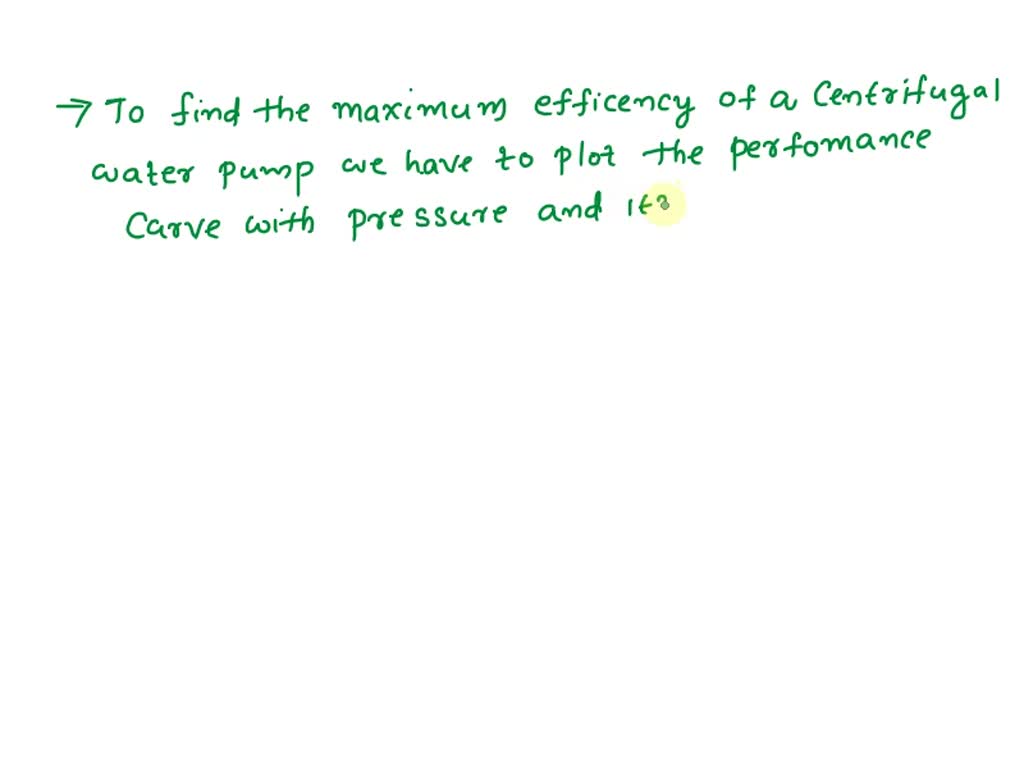 → To find the maximum efficency of a Centrifugal
water pump we have to plot the perfomance
Carve with pressure and its